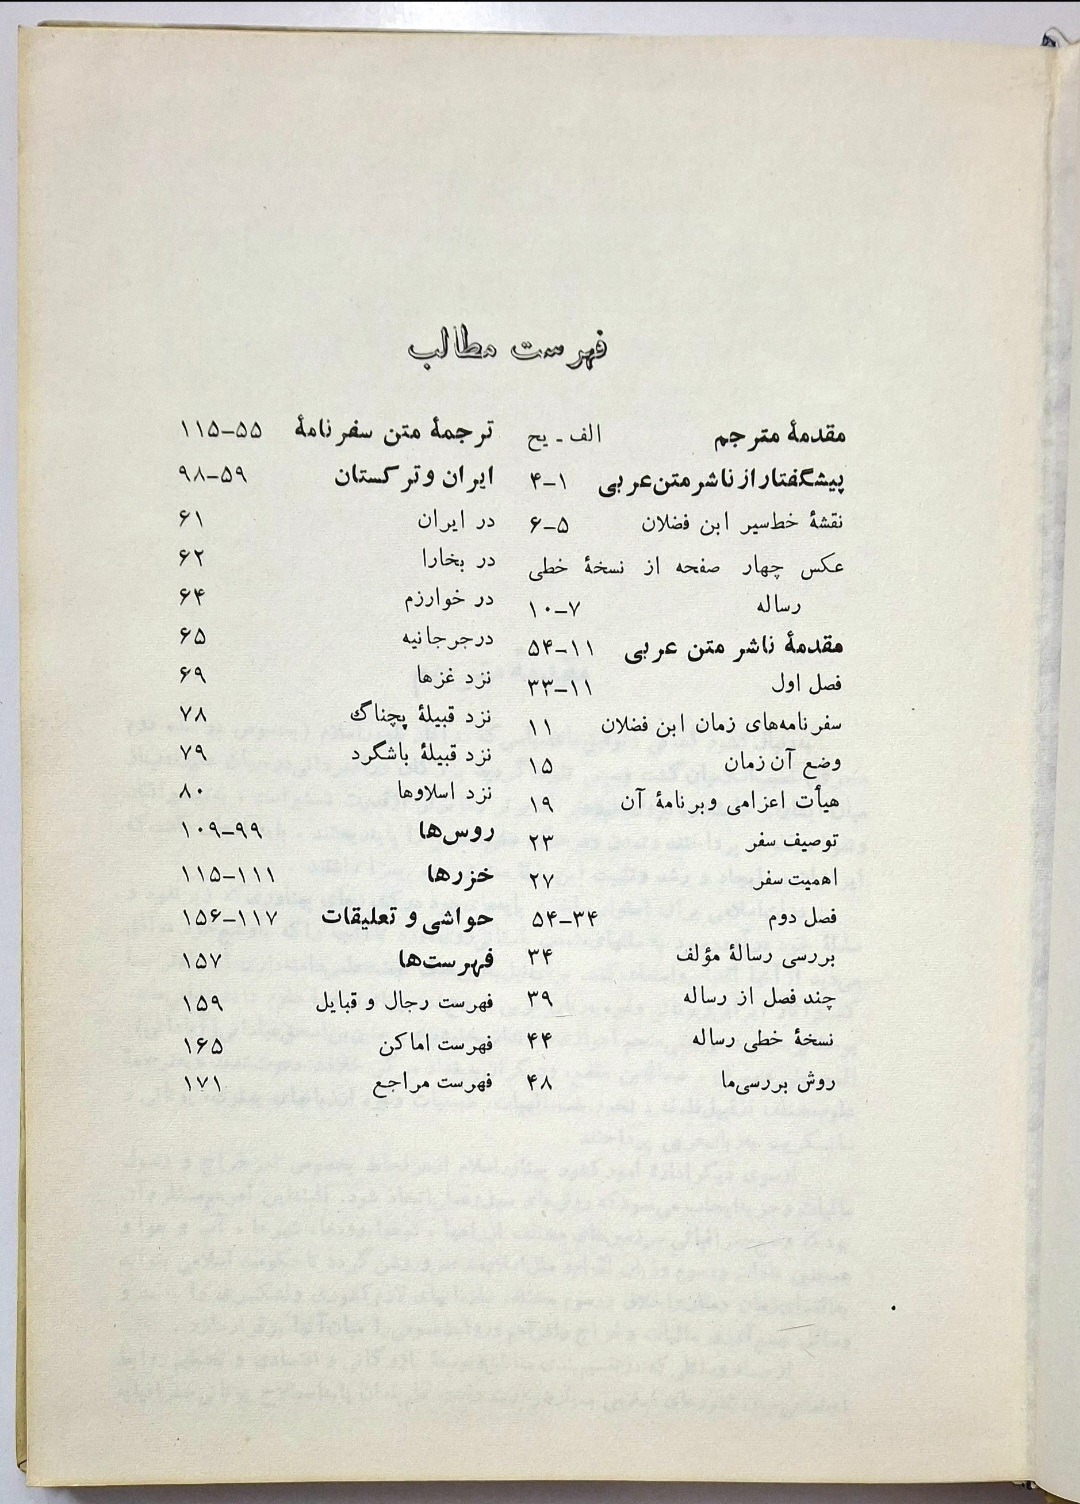 فهرست مطالب
مقدمهٔ مترجم الف - یح
پیشگفتار از ناشر متن عربی ۱–۴
نقشهٔ خط‌سیر ابن فضلان ۵–۶
عکس چهار صفحه از نسخهٔ خطی
رساله ۷–۱۰
مقدمهٔ ناشر متن عربی ۱۱–۵۴
فصل اول ۱۱–۳۳
سفرنامه‌های زمان ابن فضلان ۱۱
وضع آن زمان ۱۵
هیأت اعزامی و برنامهٔ آن ۱۹
توصیف سفر ۲۳
اهمیت سفر ۲۷
فصل دوم ۳۴–۵۴
بررسی رسالهٔ مؤلف ۳۴
چند فصل از رساله ۳۹
نسخهٔ خطی رساله ۴۴
روش بررسی‌ما ۴۸
ترجمهٔ متن سفرنامهٔ ۵۵–۱۱۵
ایران و ترکستان ۵۹–۹۸
در ایران ۶۱
در بخارا ۶۲
در خوارزم ۶۴
درجرجانیه ۶۵
نزد غزها ۶۹
نزد قبیلهٔ پچناگ ۷۸
نزد قبیلهٔ باشگرد ۷۹
نزد اسلاوها ۸۰
روس‌ها ۹۹–۱۰۹
خزرها ۱۱۱–۱۱۵
حواشی و تعلیقات ۱۱۷–۱۵۶
فهرست‌ها ۱۵۷
فهرست رجال و قبایل ۱۵۹
فهرست اماکن ۱۶۵
فهرست مراجع ۱۷۱